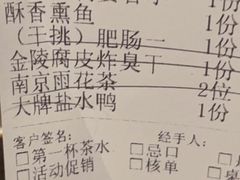 酥香熏鱼 1份
(干挑)肥肠一 1份
金陵腐皮炸臭干 1份
南京雨花茶 2位
大牌盐水鸭 1份
客户签名: 经手人:
□第一杯茶水 □忌口
□活动促销 □核单